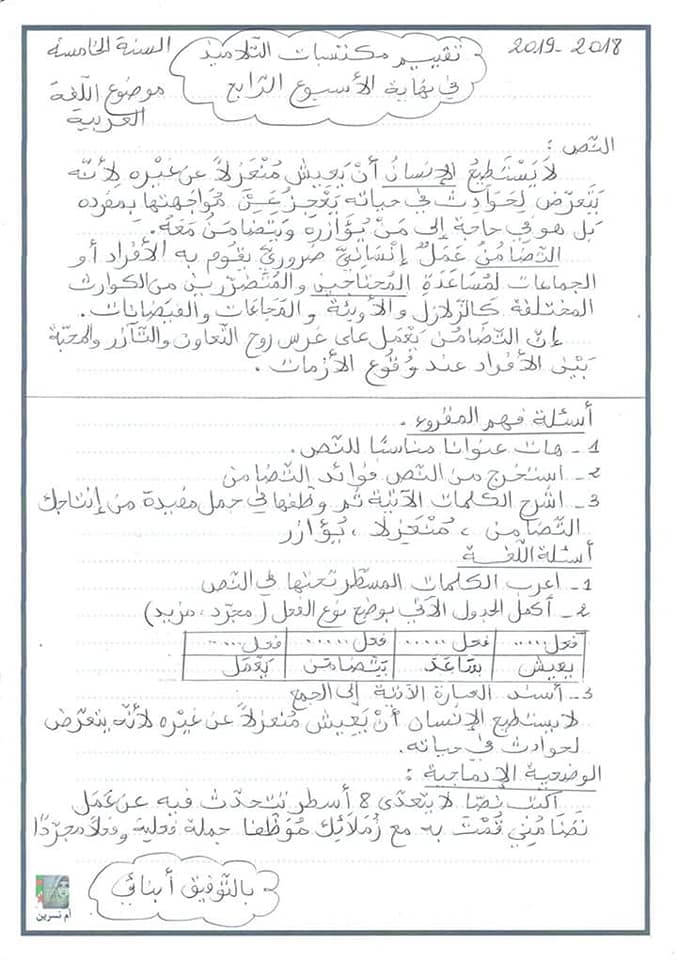 2018-2019
السنة الخامسة
تقييم مكتسبات التلاميذ
في نهاية الأسبوع الرابع
موضوع اللّغة
العربية
النّص :
لاَ يَسْتَطِيعُ الإنسانُ أنْ يَعِيش مُنْعَزِلاً عن غيْرِه لِأنّه
يَتَعرّض لِحَوادِث في حياته يَعْجِزُ عَنْ مُواجَهتِها بِمفرده
بَل هو في حاجة إلى مَنْ يُؤَازِرهُ وَيَتضامَنُ مَعَهُ.
التّضامُنُ عَمَلٌ إنْسَانِيّ ضروريّ يقوم به الأفراد أو
الجماعات لِمُسَاعَدَةِ المُحتاجين والمُتضرّرين من الكوارث
المختلفة كالزلازل والأوبئة والمَجَاعات والفيضانات.
إنّ التّضَامُن يَعْمَل على غرس روح التعاون والتّآزر والمحبّة
بَيْن الأفراد عند وُقُوع الأزمات.
أسئلة فهم المقروء.
1- هات عنوانا مناسبًا للنّص.
2- استخرج من النّص فوائد التّضامن
3- اشرح الكلمات الآتية ثم وظّفها في جمل مفيدة من إنتاجك
التّضامن ، مُنْعَزِلا ، يُؤازر
أسئلة اللّغة
1- اعرب الكلمات المسطّر تحتها في النّص
2- أكمل الجدول الآتي بوضع نوع الفعل (مجرّد ، مزيد)
فعل...... فعل...... فعل...... فعل......
يعيش ساعَدَ يتضامن يَعْمَل
3- أسند العبارة الآتية إلى الجمع
لا يستطيع الإنسان أنْ يَعِيش مُنعزلاً عن غيْرِه لأنّه يتعرّض
لحوادث في حياته.
الوضعية الإدماجية :
أكتب نصّا لا يتعدّى 8 أسطر تتحدّث فيه عن عَمَل
تضامُنِي قُمْتَ به مع زُمَلائِك مُوَظّفا جملة فعلية وفعلاً مجرّدًا
بالتّوفيق أبنائي
أم نسرين